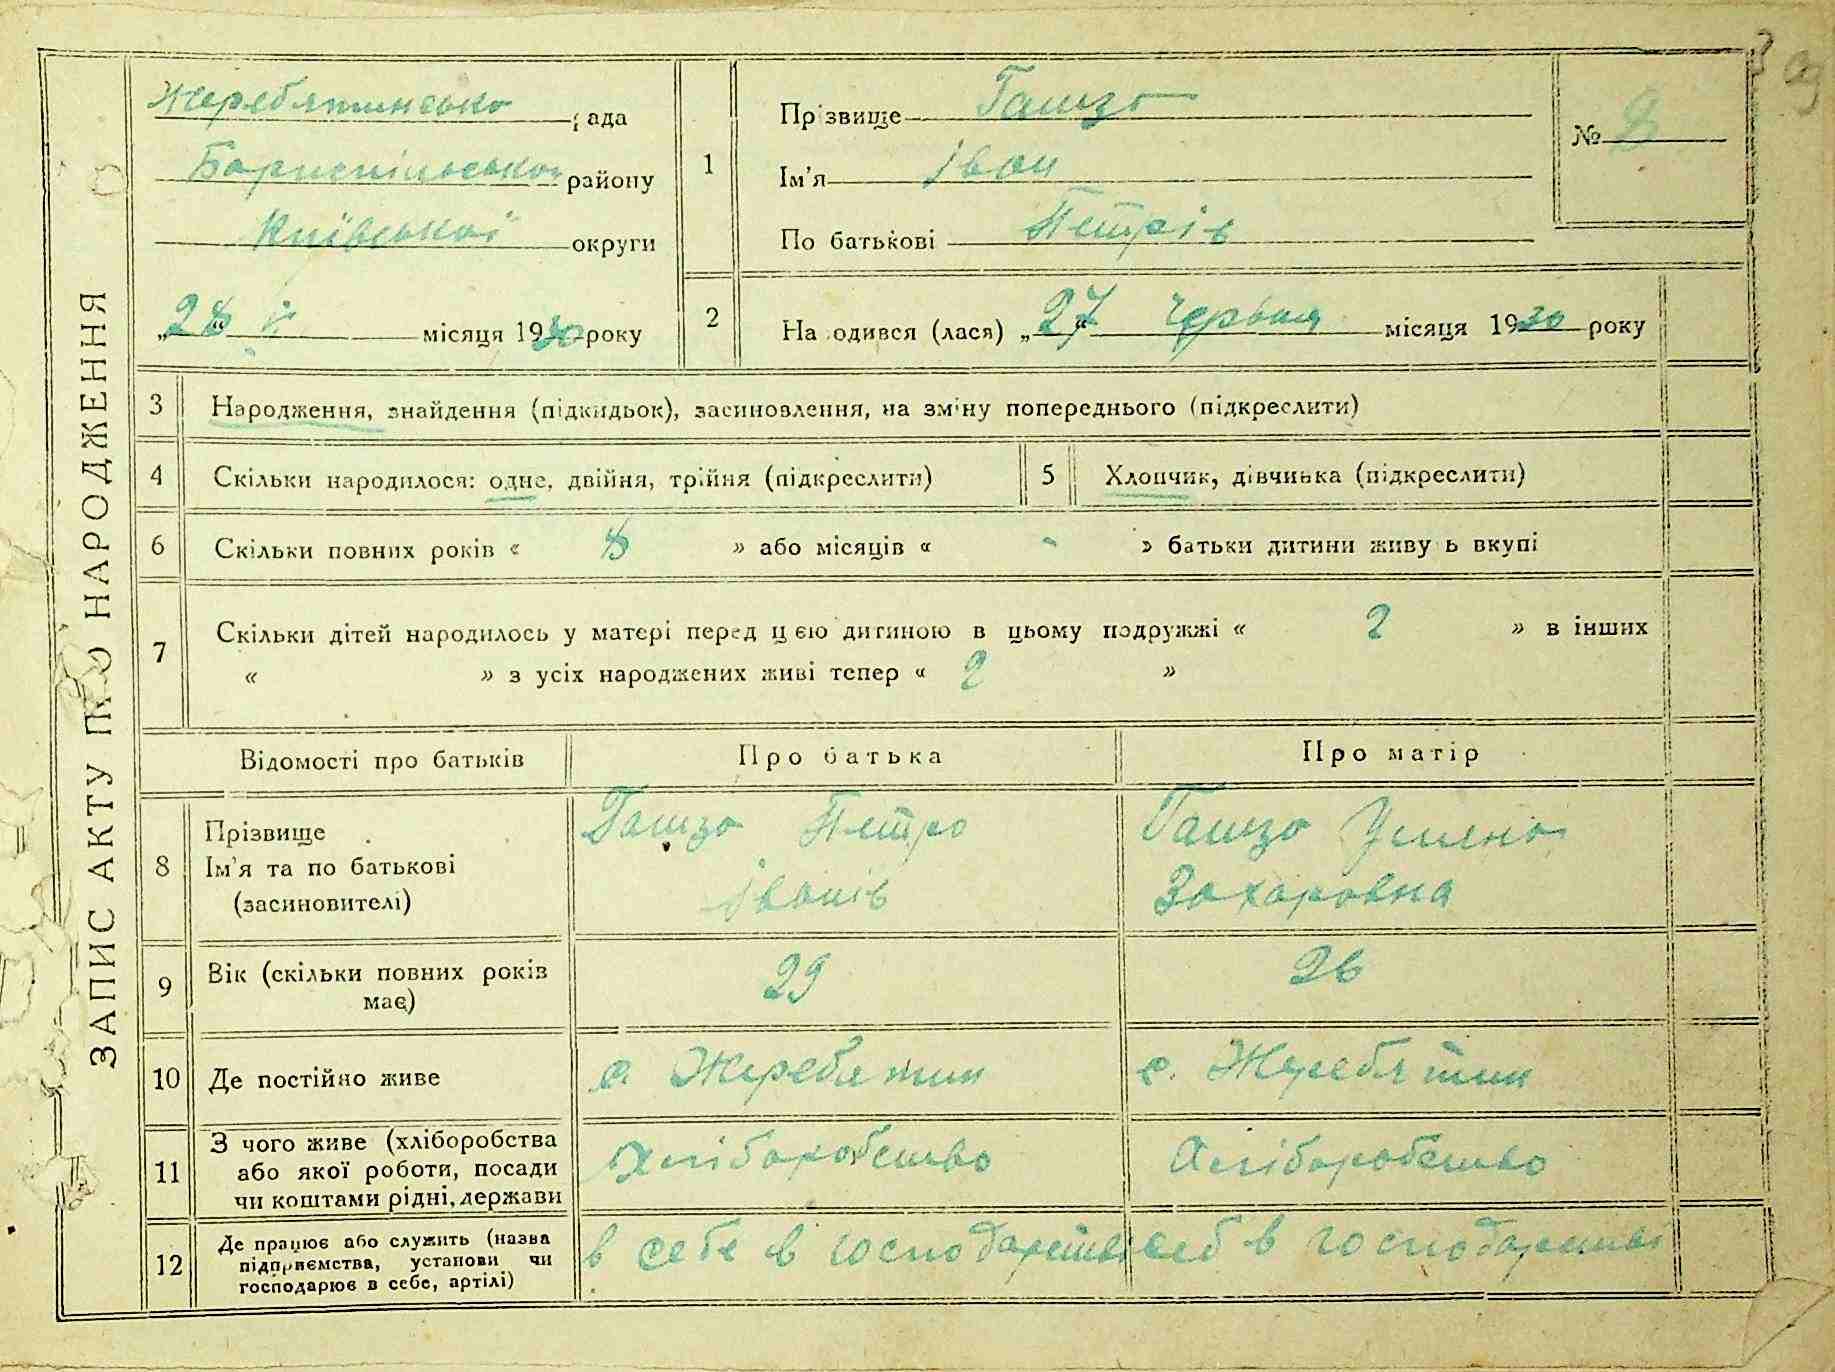 ЗАПИС АКТУ ПРО НАРОДЖЕННЯ
Жереблятинсько рада
Бориспільського району
Київської округи
„28“ місяця 1930 року
1
Прізвище Гашзо
Ім'я Іван
По батькові Петрів
№ 8
2
Народився (лася) „27“ червня місяця 1930 року
3 Народження, знайдення (підкидьок), засиновлення, на зміну попереднього (підкреслити)
4 Скільки народилося: одне, двійня, трійня (підкреслити)
5 Хлопчик, дівчинка (підкреслити)
6 Скільки повних років « 8 » або місяців « - » батьки дитини живуть вкупі
7 Скільки дітей народилось у матері перед цією дитиною в цьому подружжі « 2 » в інших
« » з усіх народжених живі тепер « 2 »
Відомості про батьків Про батька Про матір
8
Прізвище
Ім'я та по батькові
(засиновителі)
Гашзо Петро
Іванів
Гашзо
Захаровна
9 Вік (скільки повних років
має)
29
26
10 Де постійно живе
с. Жереблятин
с. Жереблятин
11
З чого живе (хліборобства
або якої роботи, посади
чи коштами рідні, держави
Хліборобство
Хліборобство
12
Де працює або служить (назва
підприємства, установи чи
господарює в себе, артілі)
в себе в господарстві
в себ в господарстві